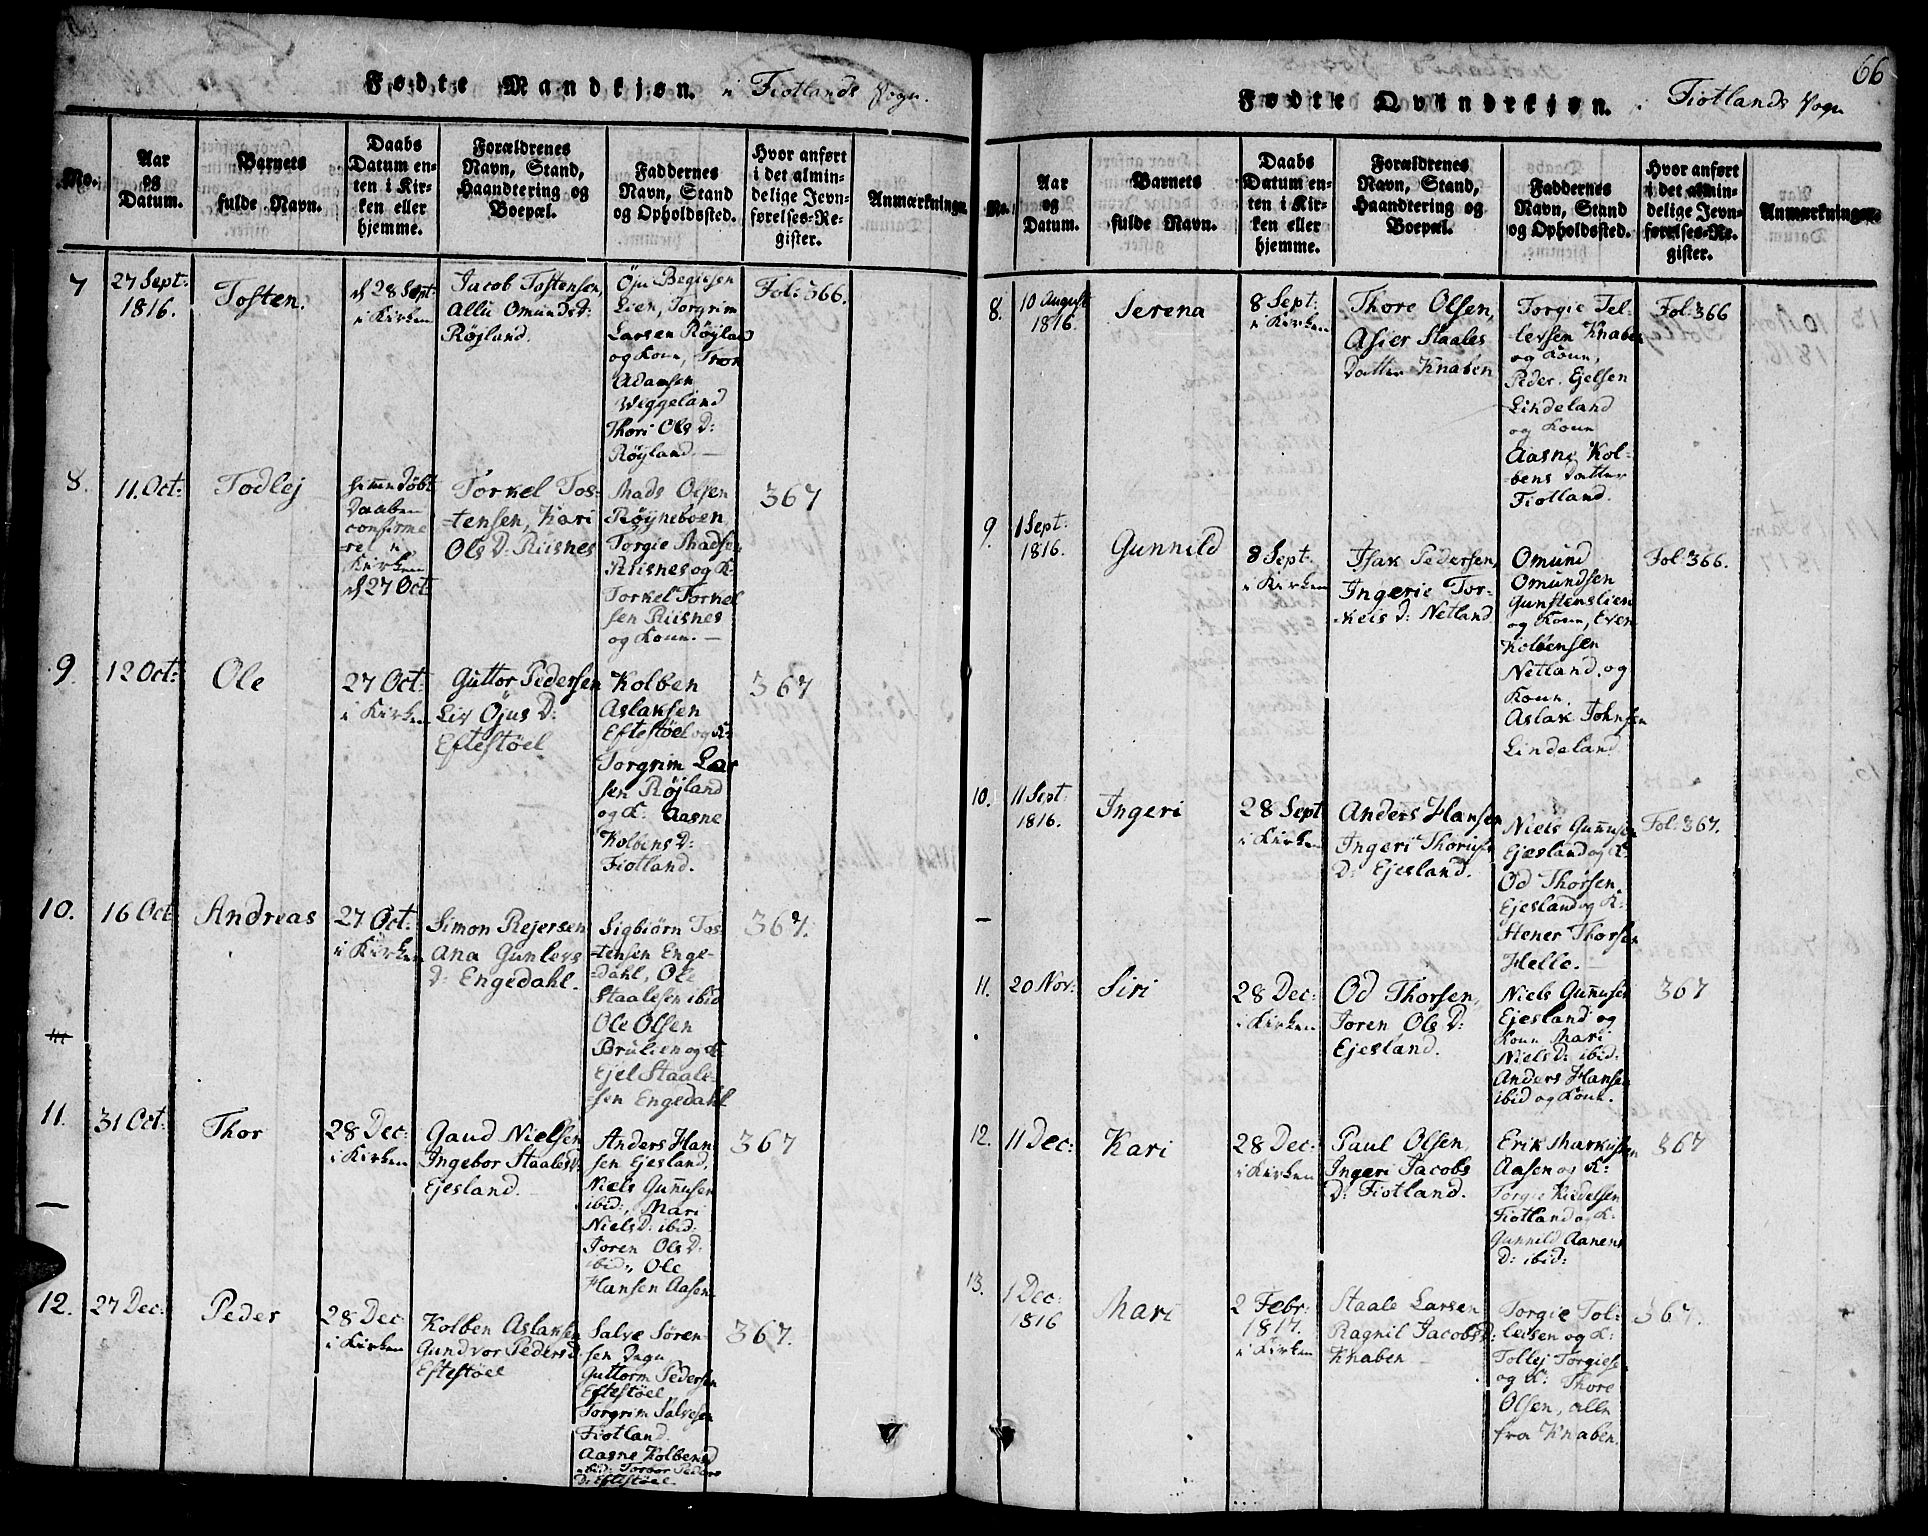 Fødte Mandkjøn. i Fiotlands Sogn.
No.
Aar
og
Datum.
Barnets
fulde Navn.
Daabs
Datum en-
ten i Kir-
ken eller
hjemme.
Forældrenes
Navn, Stand,
Haandtering og
Boepæl.
Faddernes
Navn, Stand
og Opholdssted.
Hvor anført
i det almin-
delige Jevn-
førelses-Re-
gister.
Anmærkninger.
7
27 Sept:
1816.
Tosten.
d 28 Sept:
i Kirken
Jacob Tostensen,
Alli Omunds D:
Røjland.
Öju Begiesen
Lien, Torgrim
Larsen Røjland
og Kone, Tron
Adamsen
Weggeland
Thori Ols D:
Røyland.
Fol: 366.
8.
11. Oct:
Todlej
hiemedöbt
Daaben
confirme
-re i
Kirken
d 27 Oct
Torkel Tos-
-tensen, Kari
Ols D: Riisnes
Mads Olsen
Røyneboen
Torgie Madsen
Riisnes og K:
Torkel Torkel
sen Riisnes
og Kone.
367
9.
12 Oct:
Ole
27 Oct:
i Kirken
Guttor Pedersen
Liv Öjus D:
Eftestöel
Kolben
Aslaksen
Eftestöel og K:
Torgrim Lar
sen Røjland
og K: Aasne
Kolbens D:
Fiotland.
367
10.
16 Oct
Andreas
27 Oct:
i Kirken
Simon Rejersen
Ana Gunlevs
D: Engedahl.
Sigbiörn Tos-
-tensen Enge-
-dahl, Ole
Staalesen ibid
Ole Olsen
Brulien og K:
Ejel Staale-
-sen Engedahl
367.
11.
31 Oct:
Thor
28 Dec:
i Kirken
Gaud Nielsen
Ingebor Staales D:
Ejesland.
Anders Han
sen Ejesland,
Niels Gunnusen
ibid:, Mari
Niels D: ibid:
Joren Ols D:
ibid:, Ole
Hansen Aasen
367
12.
27 Dec:
Peder
28 Dec
i Kirken
Kolben Aslaksen
Gundvor Peders D
Eftestöel
Salve Sören-
sen Degn
Guttorm Pedersen
Eftestöel
Torgrim Salvesen
Fiotland.
Aasne Kolbens D
ibid: Torbor Peders
D: Eftestöel
367.
66
Fødte Qvindekjøn. i Fiotlands Sogn
No.
Aar
og
Datum.
Barnets
fulde Navn.
Daabs
Datum en-
ten i Kir-
ken eller
hjemme.
Forældrenes
Navn, Stand,
Haandtering og
Boepæl.
Faddernes
Navn, Stand
og Opholdssted.
Hvor anført
i det almin-
delige Jevn-
førelses-Re-
gister.
Anmærkninger.
8.
10 August
1816.
Serena
8 Sept:
i Kirken
Thore Olsen,
Asier Staales
Datter Knaben
Torgie Tel-
levsen Knaben
og Kone,
Peder Ejelsen
Lindeland
og Kone
Aasne Kol-
-bens Datter
Fiotland.
Fol: 366
9.
1 Sept:
1816.
Gunnild
8 Sept:
i Kirken
Isak Pedersen,
Ingerie Tor-
-kels D: Netland
Omund
Omundsen
Gunstenslien
og Kone, Even
Kolbensen
Netland og
Kone,
Aslak Johnsen
Lindeland.
Fol: 366.
10.
11 Sept:
1816.
Ingeri
28 Sept
i Kirken
Anders Hansen
Ingeri Thorius
D: Ejesland.
Niels Gunnusen
Ejesland og K:
Od Thorsen
Ejesland og K:
Stener Thorsen
Helle.
Fol: 367.
11.
20 Nov:
Siri
28 Dec:
i Kirken
Od Thorsen,
Joren Ols D:
Ejesland.
Niels Gunnusen
Ejesland og
Kone Mari
Niels D: ibid:
Anders Hansen
ibid og Kone.
367
12.
11 Dec:
Kari
28 Dec:
i Kirken
Paul Olsen,
Ingeri Jacobs
D: Fiotland.
Erik Markusen
Aasen og K:
Torgie Kiedelsen
Fiotland og K:
Gunnild Aanens
D: ibid:
367
13.
1 Dec:
1816
Mari
2 Febr:
1817.
i Kirken
Staale Larsen
Ragnil Jacobs D:
Knaben
Torgie Tol-
levsen og K:
Tollej Torgiesen
og K: Thore
Olsen, alle
fra Knaben.
367.